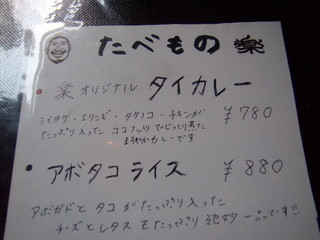 たべもの 楽
楽 オリジナル タイカレー
シイタケ・エリンギ・タケノコ・チキンが ¥780
たっぷり入った ココナッツでじっくり煮た
まろやかカレーです
アボタコライス ¥880
アボガドと タコ がたっぷり入った
チーズとレタスもたっぷり 絶妙 一品です!!